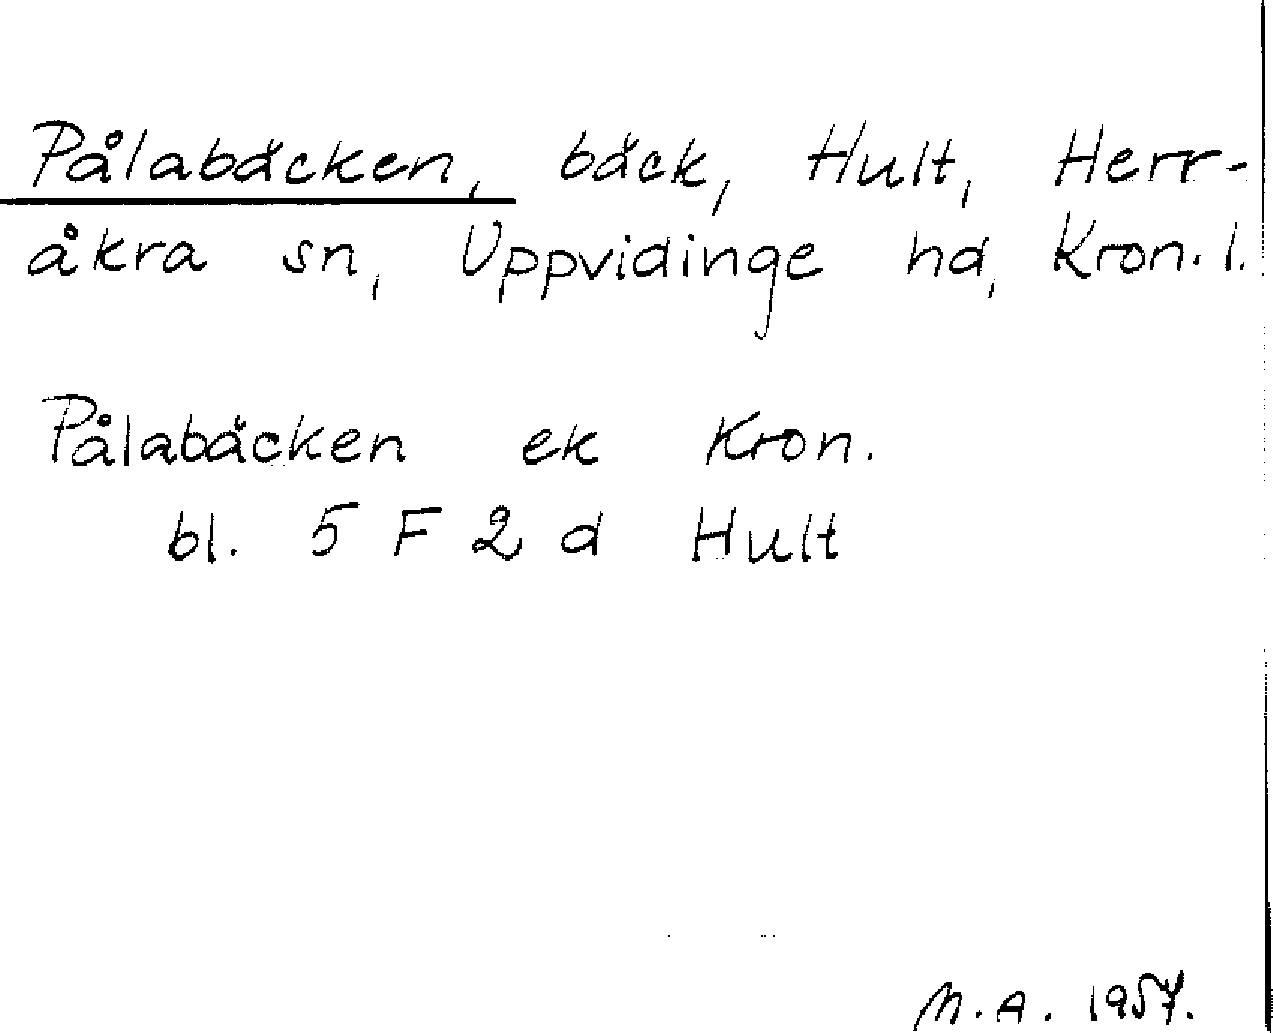 Pålabäcken, bäck, Hult, Herr-
åkra sn, Uppvidinge hd, Kron. l.
Pålabäcken ek Kron.
bl. 5 F 2 d Hult
M.A. 1957.